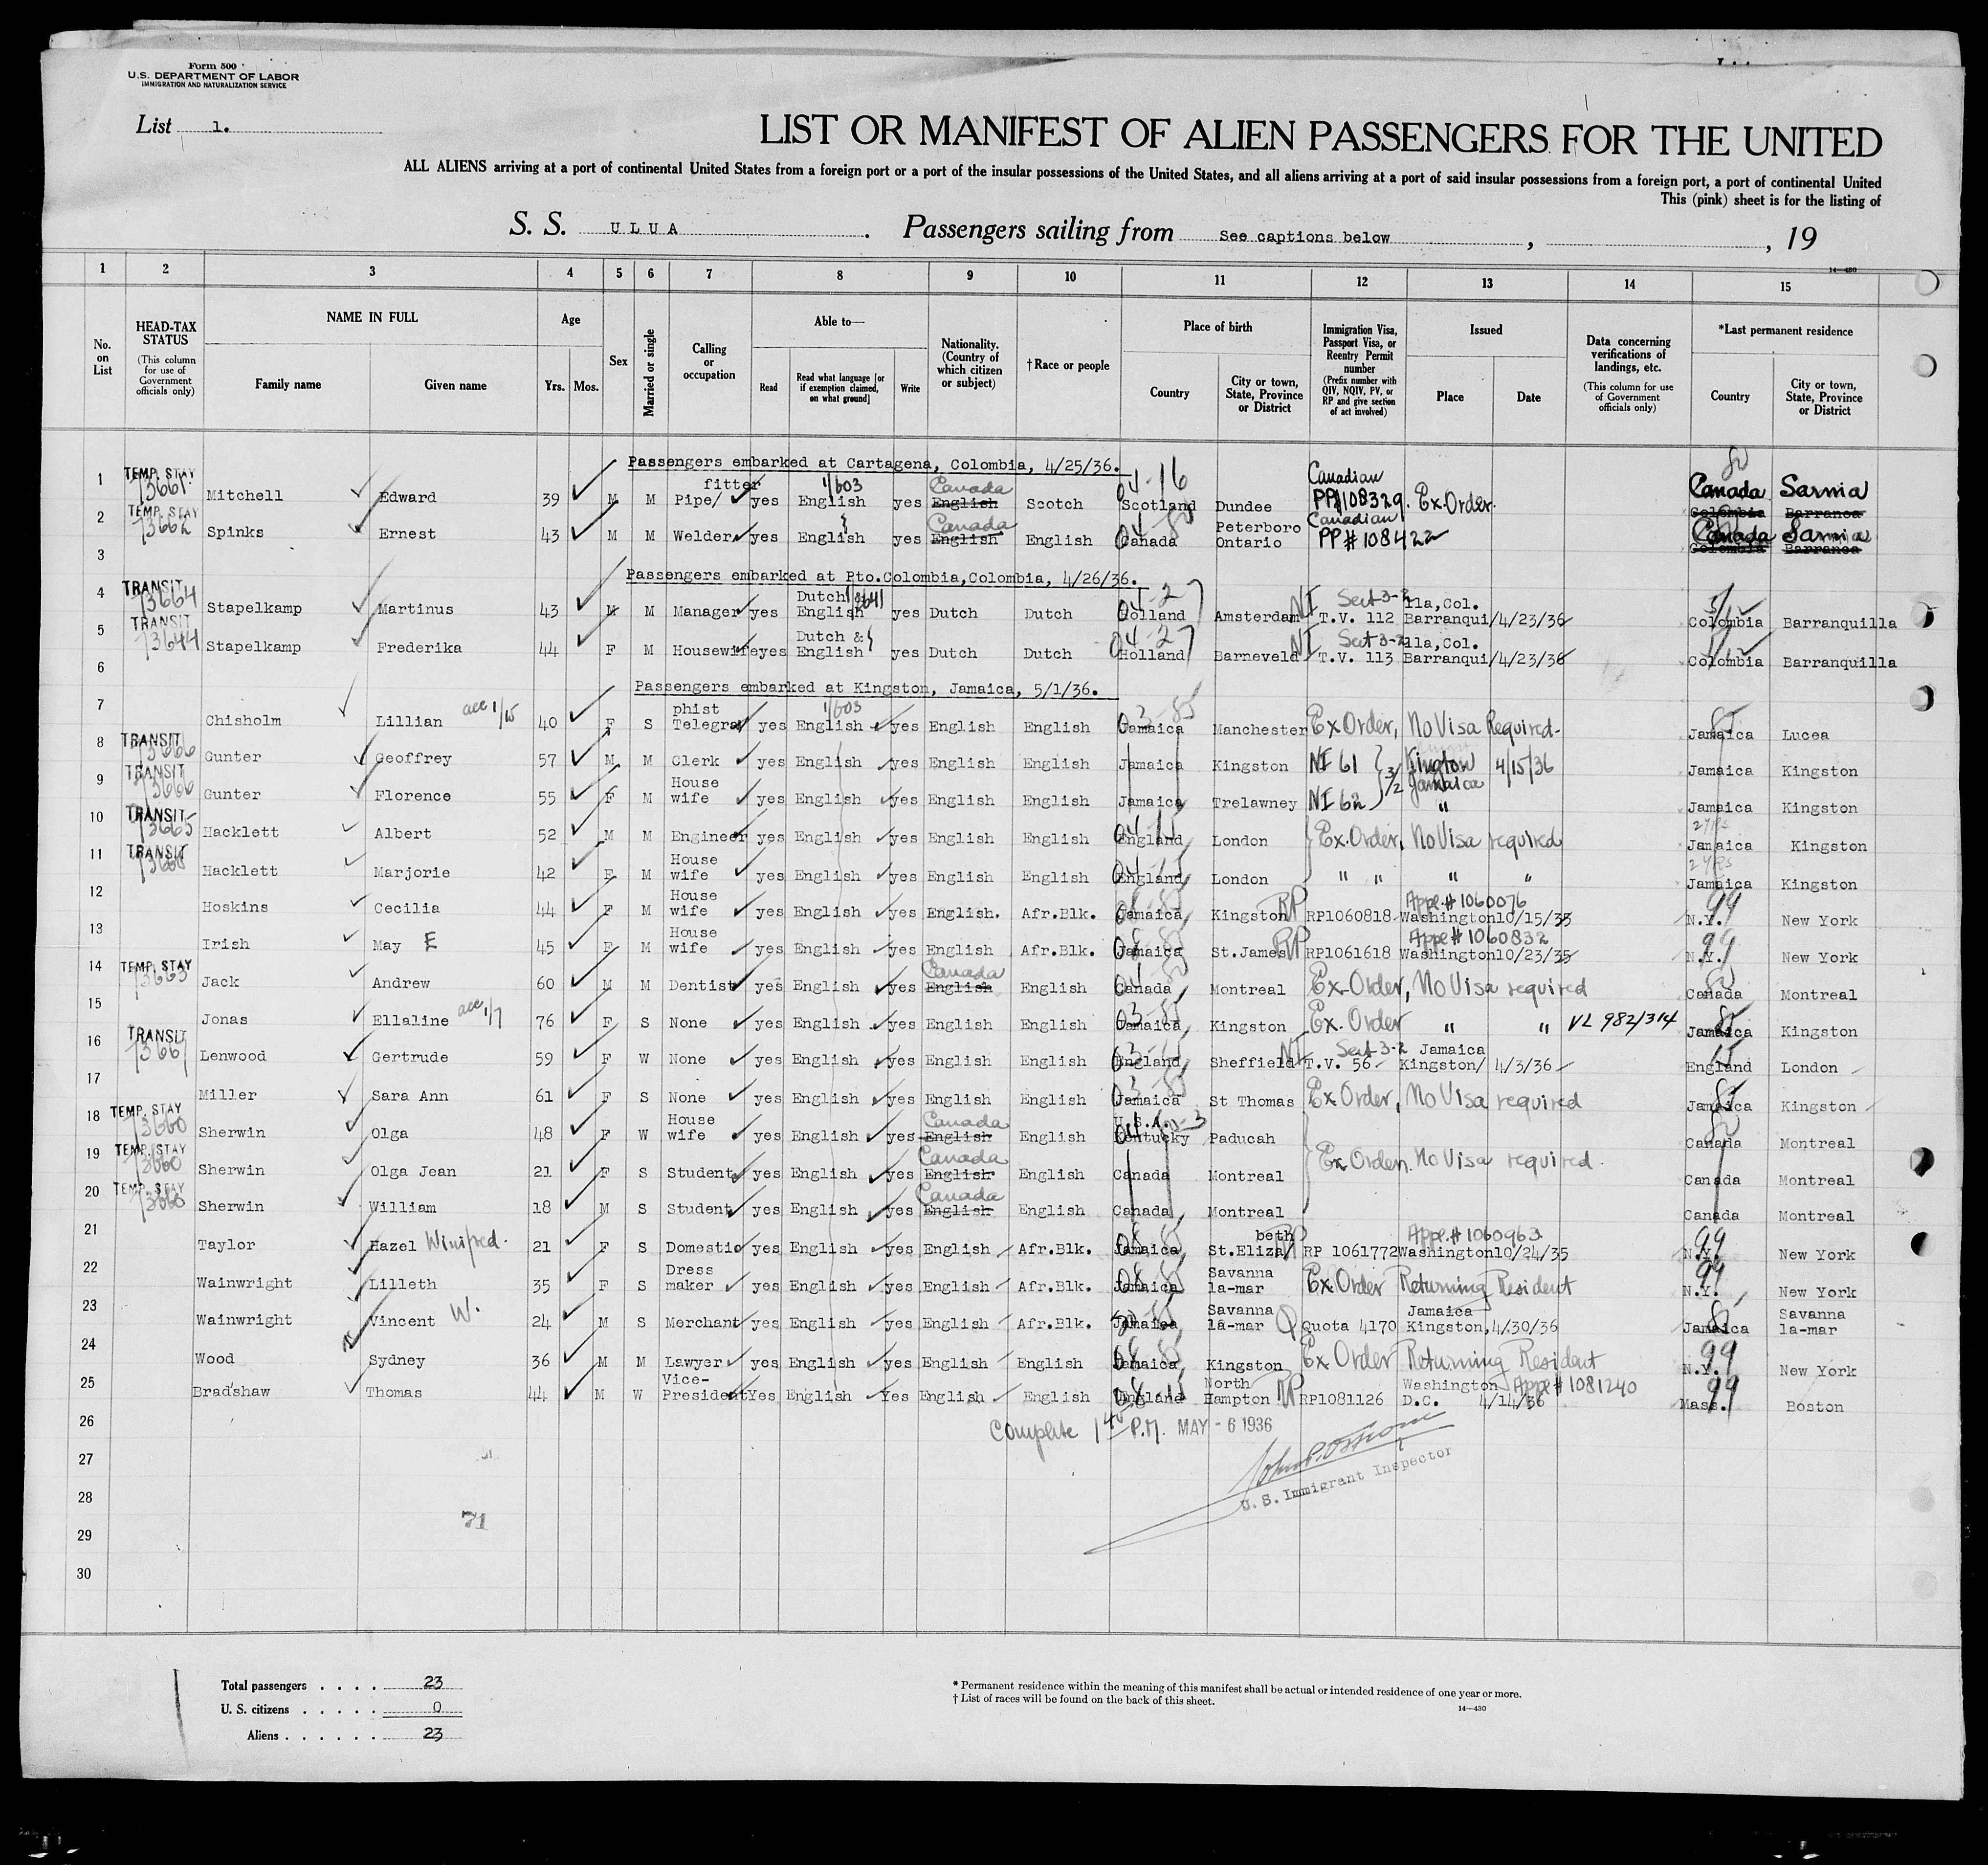 Form 500
U.S. DEPARTMENT OF LABOR
IMMIGRATION AND NATURALIZATION SERVICE
List 1.
LIST OR MANIFEST OF ALIEN PASSENGERS FOR THE UNITED
ALL ALIENS arriving at a port of continental United States from a foreign port or a port of the insular possessions of the United States, and all aliens arriving at a port of said insular possessions from a foreign port, a port of continental United
This (pink) sheet is for the listing of
S. S. ULUA . Passengers sailing from See captions below , , 19
14—430
1 2 3 4 5 6 7 8 9 10 11 12 13 14 15
No. on List
HEAD-TAX STATUS (This column for use of Government officials only)
NAME IN FULL Family name Given name
Age Yrs. Mos.
Sex
Married or single
Calling or occupation
Able to— Read Read what language [or if exemption claimed, on what ground] Write
Nationality. (Country of which citizen or subject)
†Race or people
Place of birth Country City or town, State, Province or District
Immigration Visa, Passport Visa, or Reentry Permit number (Prefix number with QIV, NQIV, PV, or RP and give section of act involved)
Issued Place Date
Data concerning verifications of landings, etc. (This column for use of Government officials only)
*Last permanent residence Country City or town, State, Province or District
Passengers embarked at Cartagena, Colombia, 4/25/36.
1 TEMP. STAY 73661 Mitchell Edward 39 M M Pipe/ fitter yes English 1/603 yes English Canada Scotch Scotland Dundee Canadian PP#108329. Ex.Order. Canada Sarnia Colombia Barranca
2 TEMP. STAY 73662 Spinks Ernest 43 M M Welder yes English yes English Canada English Canada Peterboro Ontario Canadian PP#108422 Canada Sarnia Colombia Barranca
3
Passengers embarked at Pto.Colombia,Colombia, 4/26/36.
4 TRANSIT 73664 Stapelkamp Martinus 43 M M Manager yes Dutch & English yes Dutch Dutch Holland Amsterdam NI Sect 3-2 T.V. 112 Barranqui/lla,Col. 4/23/36 Colombia Barranquilla
5 TRANSIT 73644 Stapelkamp Frederika 44 F M Housewife yes Dutch & English yes Dutch Dutch Holland Barneveld NI Sect 3-2 T.V. 113 Barranqui/lla,Col. 4/23/36 Colombia Barranquilla
6
Passengers embarked at Kingston, Jamaica, 5/1/36.
7 Chisholm Lillian acc 1/15 40 F S Telegra phist yes English 1/603 yes English English Jamaica Manchester Ex Order, No Visa Required- Jamaica Lucea
8 TRANSIT 73666 Gunter Geoffrey 57 M M Clerk yes English yes English English Jamaica Kingston NI 61 3/2 Kingston Jamaica 4/15/36 Jamaica Kingston
9 TRANSIT 73666 Gunter Florence 55 F M House wife yes English yes English English Jamaica Trelawney NI 62 " Jamaica Kingston
10 TRANSIT 73665 Hacklett Albert 52 M M Engineer yes English yes English English England London Ex.Order, No Visa required 2 yrs Jamaica Kingston
11 TRANSIT Hacklett Marjorie 42 F M House wife yes English yes English English England London " " " " 2 yrs Jamaica Kingston
12 Hoskins Cecilia 44 F M House wife yes English yes English. Afr.Blk. Jamaica Kingston RP RP1060818 Appe.#1060076 Washington 10/15/35 99 N.Y. New York
13 Irish May E 45 F M House wife yes English yes English Afr.Blk. Jamaica St.James RP RP1061618 Appe#1060832 Washington 10/23/35 99 N.Y. New York
14 TEMP. STAY 73663 Jack Andrew 60 M M Dentist yes English yes English Canada English Canada Montreal Ex-Order, No Visa required Canada Montreal
15 Jonas Ellaline acc 1/7 76 F S None yes English yes English English Jamaica Kingston Ex. Order " " VL 982/314 Jamaica Kingston
16 TRANSIT 73667 Lenwood Gertrude 59 F W None yes English yes English English England Sheffield NI Sect 3-2 T.V. 56 Jamaica Kingston/ 4/3/36 England London
17 Miller Sara Ann 61 F S None yes English yes English English Jamaica St Thomas Ex.Order, No Visa required Jamaica Kingston
18 TEMP. STAY 73660 Sherwin Olga 48 F W House wife yes English yes English Canada English U.S.A. Kentucky Paducah Canada Montreal
19 TEMP. STAY 73660 Sherwin Olga Jean 21 F S Student yes English yes English Canada English Canada Montreal Ex Order. No Visa required. Canada Montreal
20 TEMP. STAY 73660 Sherwin William 18 M S Student yes English yes English Canada English Canada Montreal Canada Montreal
21 Taylor Hazel Winifred. 21 F S Domestic yes English yes English Afr.Blk. Jamaica St.Eliza/beth RP RP 1061772 Appe.#1060963 Washington 10/24/35 99 N.Y. New York
22 Wainwright Lilleth 35 F S Dress maker yes English yes English Afr.Blk. Jamaica Savanna la-mar Ex Order Returning Resident 99 N.Y. New York
23 Wainwright Vincent W. 24 M S Merchant yes English yes English Afr.Blk. Jamaica Savanna la-mar Q Quota 4170 Jamaica Kingston, 4/30/36 Jamaica Savanna la-mar
24 Wood Sydney 36 M M Lawyer yes English yes English English Jamaica Kingston Ex Order Returning Resident 99 N.Y. New York
25 Bradshaw Thomas 44 M W Vice-President Yes English Yes English English England North Hampton RP RP1081126 Washington D.C. Appe#1081240 4/14/36 99 Mass. Boston
26
Complete 1 40 P.M. MAY - 6 1936
27
U. S. Immigrant Inspector
28
29
71
30
Total passengers . . . . 23
U. S. citizens . . . . . 0
Aliens . . . . . . 23
* Permanent residence within the meaning of this manifest shall be actual or intended residence of one year or more.
† List of races will be found on the back of this sheet.
14—430